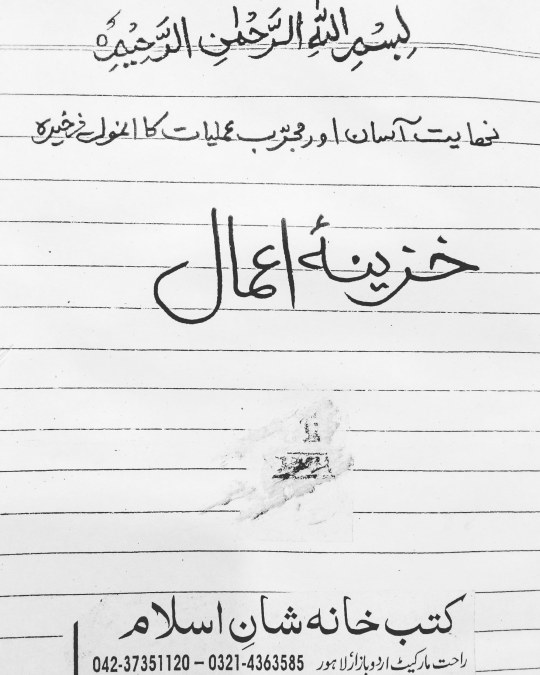 بِسْمِ اللهِ الرَّحْمٰنِ الرَّحِيْمِ
نہایت آسان اور مجرّب عملیات کا انمول ذخیرہ
خزینۂ اعمال
کتب خانہ شانِ اسلام
راحت مارکیٹ اردو بازار لاہور 0321-4363585 – 042-37351120